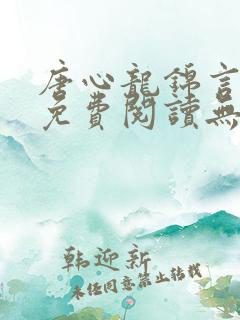 唐心龍錦言
免費閱讀無
韩迎新
未经同意禁止转载